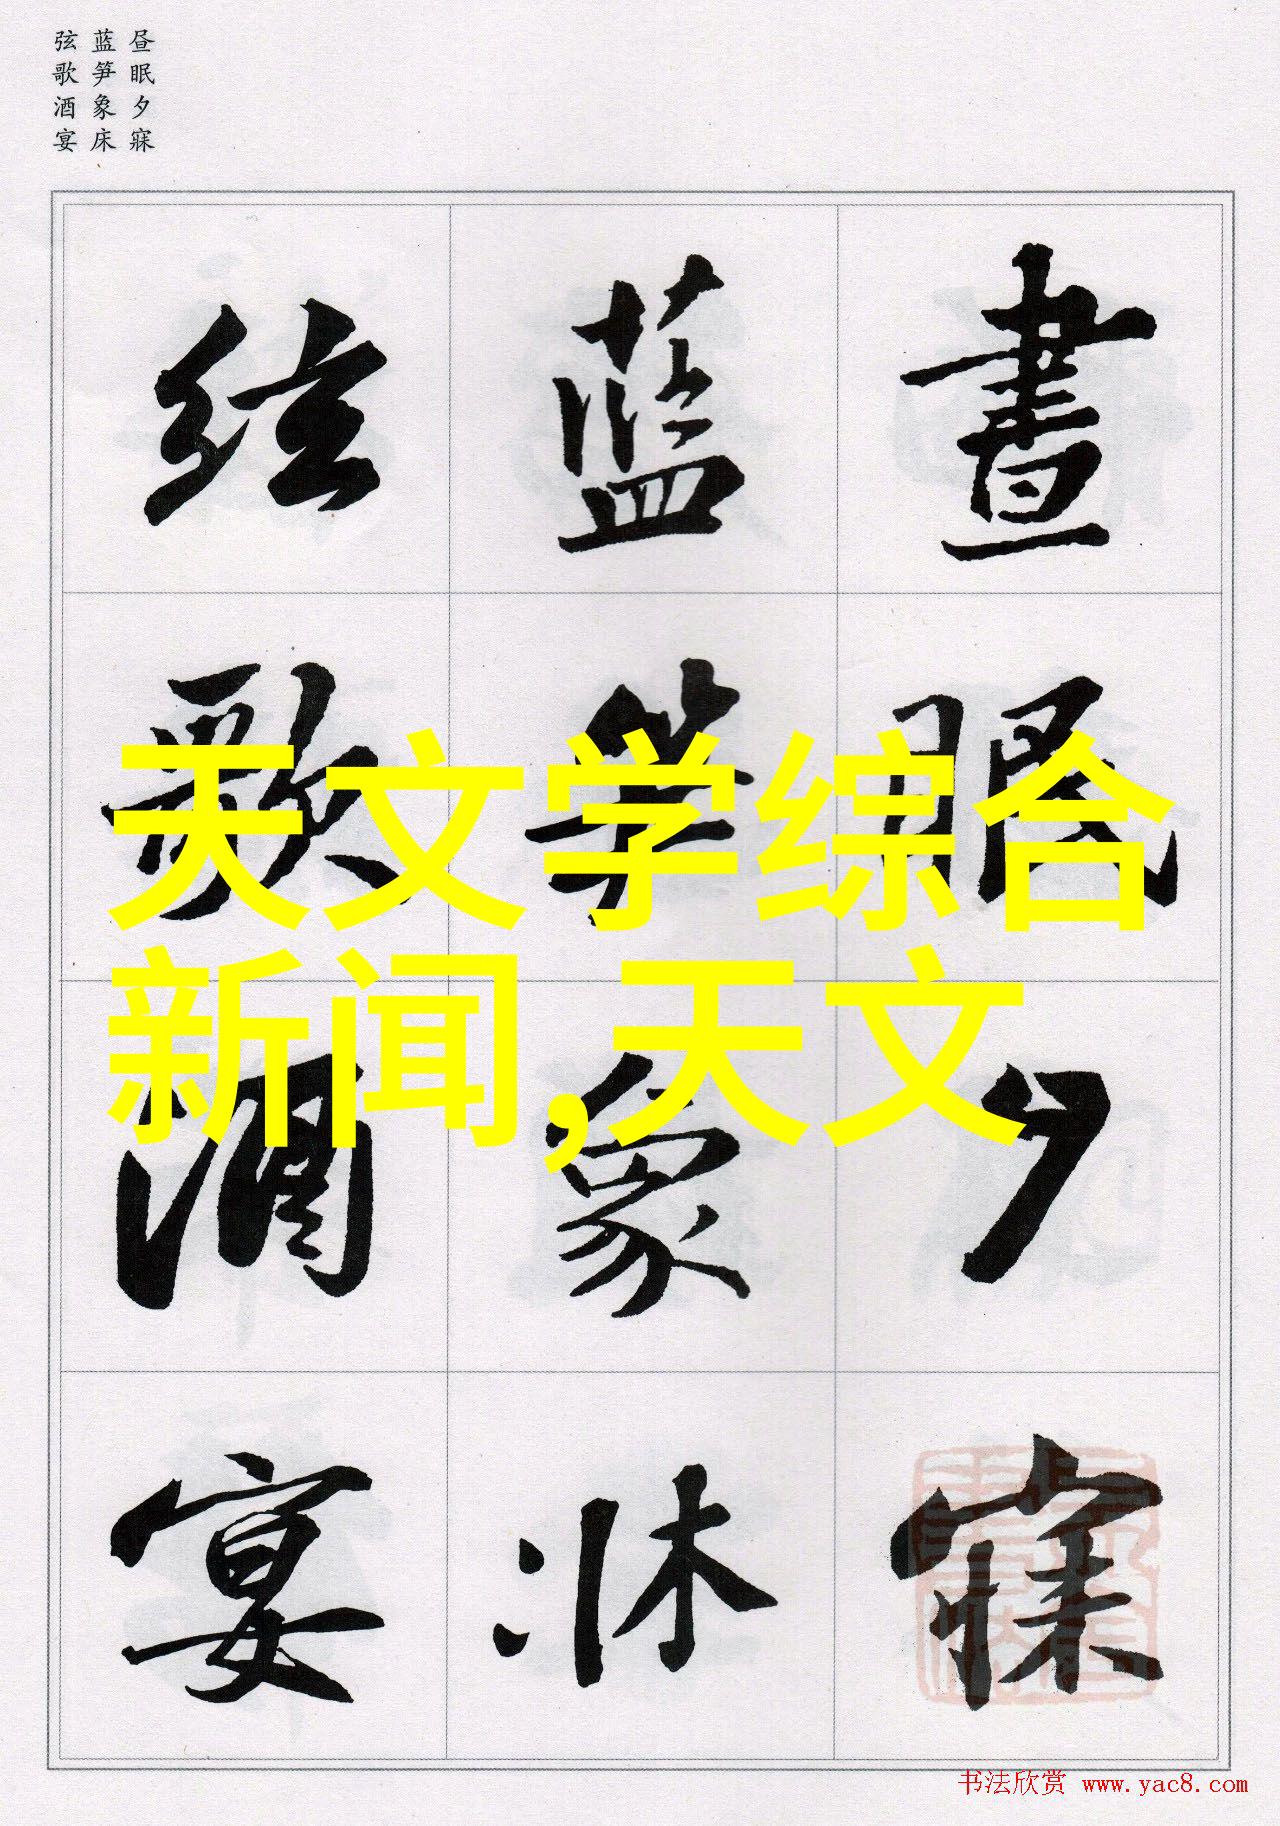 昼眠夕寐
蓝笋象床
弦歌酒宴
晝眠夕寐
蓝笋象牀
弦歌酒宴
天文学综合
新闻,天文
书法欣赏 www.yac8.com